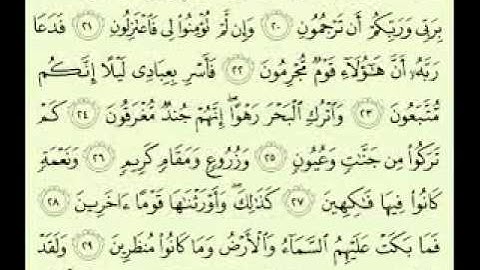 بِرَبِّي وَرَبِّكُمْ أَن تَرْجُمُونِ ٢٠ وَإِن لَّمْ تُؤْمِنُوا۟ لِي فَٱعْتَزِلُونِ ٢١ فَدَعَا
رَبَّهُۥٓ أَنَّ هَٰٓؤُلَآءِ قَوْمٌ مُّجْرِمُونَ ٢٢ فَأَسْرِ بِعِبَادِي لَيْلًا إِنَّكُم
مُّتَّبَعُونَ ٢٣ وَٱتْرُكِ ٱلْبَحْرَ رَهْوًا ۖ إِنَّهُمْ جُندٌ مُّغْرَقُونَ ٢٤ كَمْ
تَرَكُوا۟ مِن جَنَّٰتٍ وَعُيُونٍ ٢٥ وَزُرُوعٍ وَمَقَامٍ كَرِيمٍ ٢٦ وَنَعْمَةٍ
كَانُوا۟ فِيهَا فَٰكِهِينَ ٢٧ كَذَٰلِكَ ۖ وَأَوْرَثْنَٰهَا قَوْمًا ءَاخَرِينَ ٢٨
فَمَا بَكَتْ عَلَيْهِمُ ٱلسَّمَآءُ وَٱلْأَرْضُ وَمَا كَانُوا۟ مُنظَرِينَ ٢٩ وَلَقَدْ